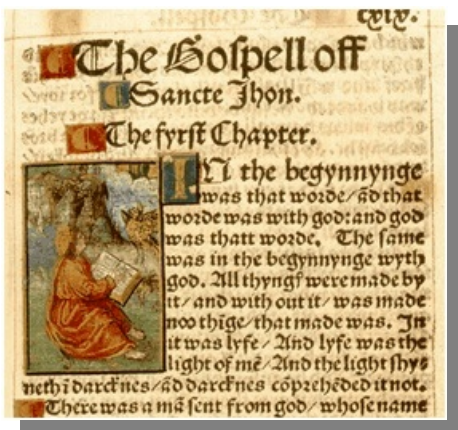 cxix.
The Gospell off
Sancte Jhon.
The fyrst Chapter.
IN the begynnynge
was that worde/ ād that
worde was with god: and god
was thatt worde. The same
was in the begynnynge wyth
god. All thyngſ were made by
it/ and with out it/ was made
noo thīge/ that made was. In
it was lyfe/ And lyfe was the
light of mē/ And the light shys
neth ī darcknes/ ād darcknes cōprehēded it not.
There was a mā sent from god/ whose name